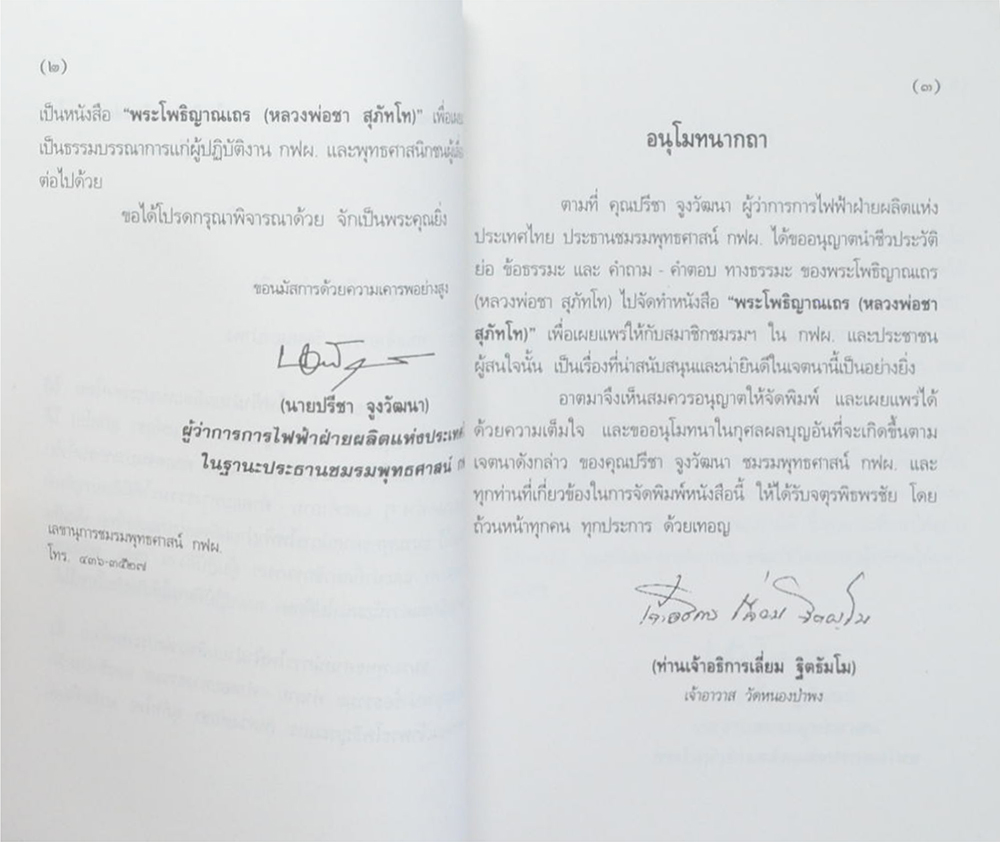 (๒)
เป็นหนังสือ "พระโพธิญาณเถร (หลวงพ่อชา สุภัทโท)"
เป็นธรรมบรรณาการแก่ผู้ปฏิบัติงาน กฟผ. และพุทธศาสนิกชน
ต่อไปด้วย
ขอได้โปรดกรุณาพิจารณาด้วย จักเป็นพระคุณยิ่ง
ขอนมัสการด้วยความเคารพอย่างสูง
(นายปรีชา จูงวัฒนา)
ผู้ว่าการการไฟฟ้าฝ่ายผลิตแห่งประเท
ในฐานะประธานชมรมพุทธศาสน์
เลขานุการชมรมพุทธศาสน์ กฟผ.
โทร. ๔๓๖-๓๕๒๗
(๓)
อนุโมทนากถา
ตามที่ คุณปรีชา จูงวัฒนา ผู้ว่าการการไฟฟ้าฝ่ายผลิตแห่ง
ประเทศไทย ประธานชมรมพุทธศาสน์ กฟผ. ได้ขออนุญาตนำชีวประวัติ
ย่อ ข้อธรรมะ และ คำถาม - คำตอบ ทางธรรมะ ของพระโพธิญาณเถร
(หลวงพ่อชา สุภัทโท) ไปจัดทำหนังสือ "พระโพธิญาณเถร (หลวงพ่อชา
สุภัทโท)" เพื่อเผยแพร่ให้กับสมาชิกชมรมฯ ใน กฟผ. และประชาชน
ผู้สนใจนั้น เป็นเรื่องที่น่าสนับสนุนและน่ายินดีในเจตนานี้เป็นอย่างยิ่ง
อาตมาจึงเห็นสมควรอนุญาตให้จัดพิมพ์ และเผยแพร่ได้
ด้วยความเต็มใจ และขออนุโมทนาในกุศลผลบุญอันที่จะเกิดขึ้นตาม
เจตนาดังกล่าว ของคุณปรีชา จูงวัฒนา ชมรมพุทธศาสน์ กฟผ. และ
ทุกท่านที่เกี่ยวข้องในการจัดพิมพ์หนังสือนี้ ให้ได้รับจตุรพิธพรชัย โดย
ถ้วนหน้าทุกคน ทุกประการ ด้วยเทอญ
เจ้าอธิการ เลี่ยม ฐิตธมฺโม
(ท่านเจ้าอธิการเลี่ยม ฐิตธัมโม)
เจ้าอาวาส วัดหนองป่าพง